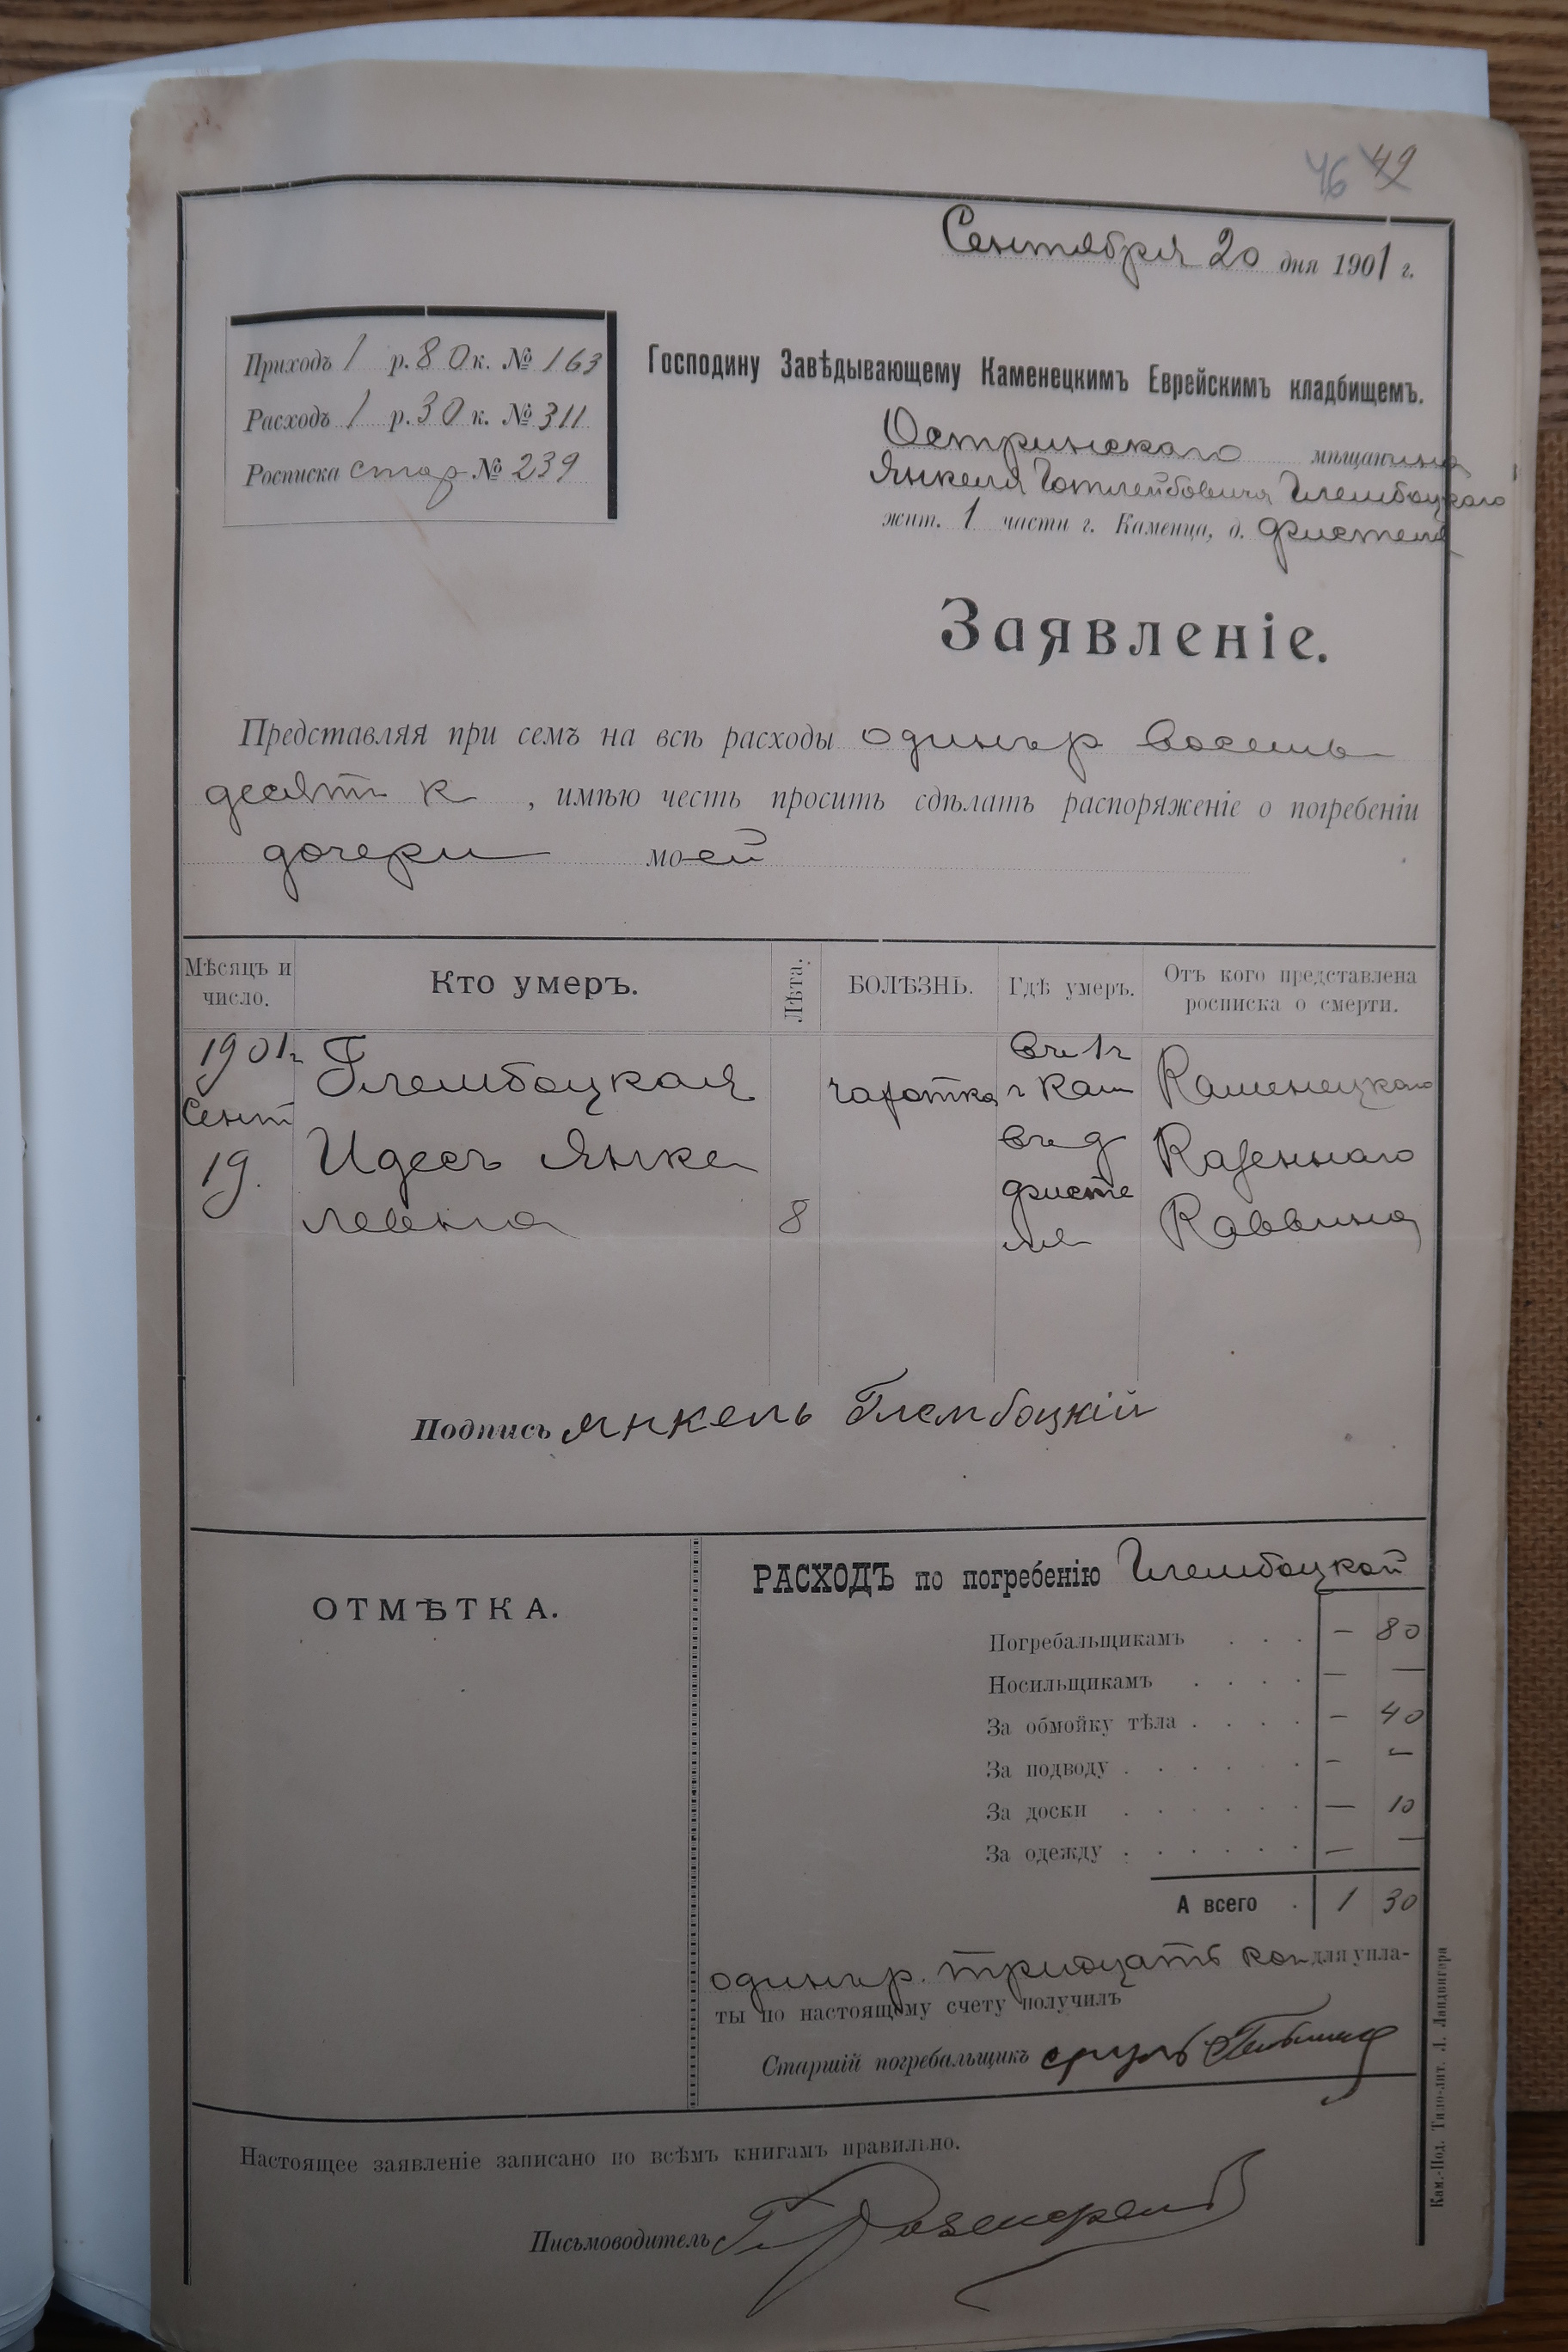 46 49
Сентября 20 дня 1901 г.
Приходъ 1 р. 80 к. № 163
Расходъ 1 р. 30 к. № 311
Росписка стар № 239
Господину Завѣдывающему Каменецкимъ Еврейскимъ кладбищемъ.
Остринскаго мѣщанина
Янкеля Готлейбовича Глембоцкаго
жит. 1 части г. Каменца, д. Фистеля
Заявленіе.
Представляя при семъ на всѣ расходы одинъ р восемь
десятъ к , имѣю честь просить сдѣлать распоряженіе о погребеніи
дочери моей
Мѣсяцъ и число.
Кто умеръ.
Лѣта.
БОЛѢЗНЬ.
Гдѣ умеръ.
Отъ кого представлена росписка о смерти.
1901 г
Сент
19.
Глембоцкая
Идесъ Янке
левна
8
чахотка
въ 1 ч
г Кам
въ д
Фисте
ля
Каменецкаго
Казеннаго
Раввина
Подпись Янкель Глембоцкій
ОТМѢТКА.
РАСХОДЪ по погребенію Глембоцкой
Погребальщикамъ . . . — 80
Носильщикамъ . . . . — —
За обмойку тѣла . . . . — 40
За подводу . . . . . . — —
За доски . . . . . . — 10
За одежду . . . . . . — —
А всего . 1 30
одинъ р. тридцать коп для упла-
ты по настоящему счету получилъ
Старшій погребальщикъ сруль
Настоящее заявленіе записано по всѣмъ книгамъ правильно.
Письмоводитель
Кам.-Под. Типо-лит. Л. Ландвигера